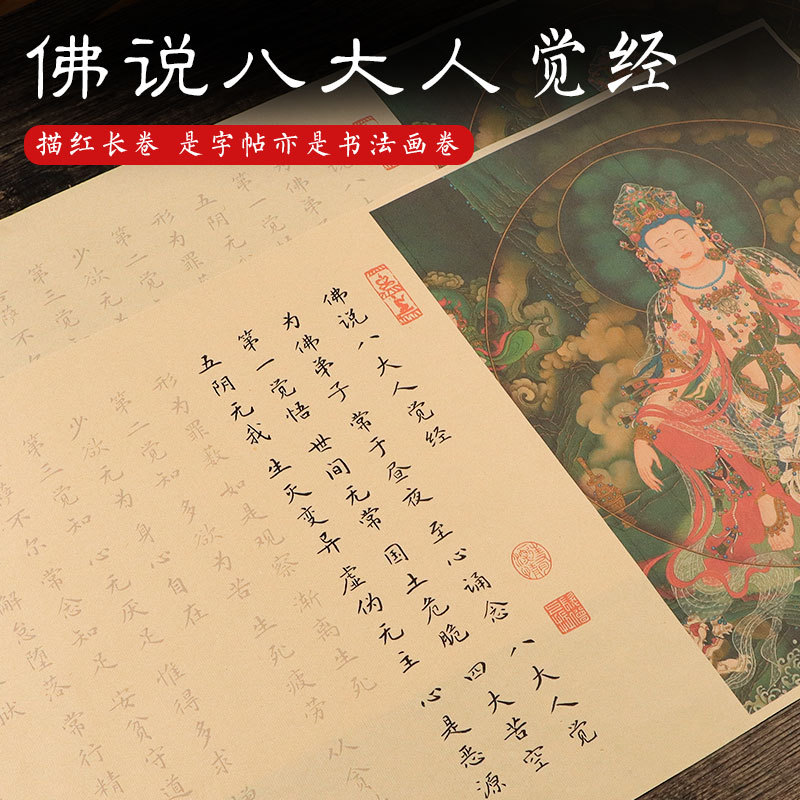 佛说八大人觉经
描红长卷 是字帖亦是书法画卷
佛说八大人觉经
为佛弟子 常于昼夜 至心诵念 八大人觉
第一觉悟 世间无常 国土危脆 四大苦空
五阴无我 生灭变异 虚伪无主 心是恶源
形为罪薮 如是观察 渐离生死
第二觉知 多欲为苦 生死疲劳 从贪
少欲无为 身心自在
第三觉知 心无厌足 惟得多求
萨不尔 常念知足 安贫守道
懈怠堕落 常行精
第一觉
五阴无
形为罪
第二觉
少欲无
第三觉
萨不尔